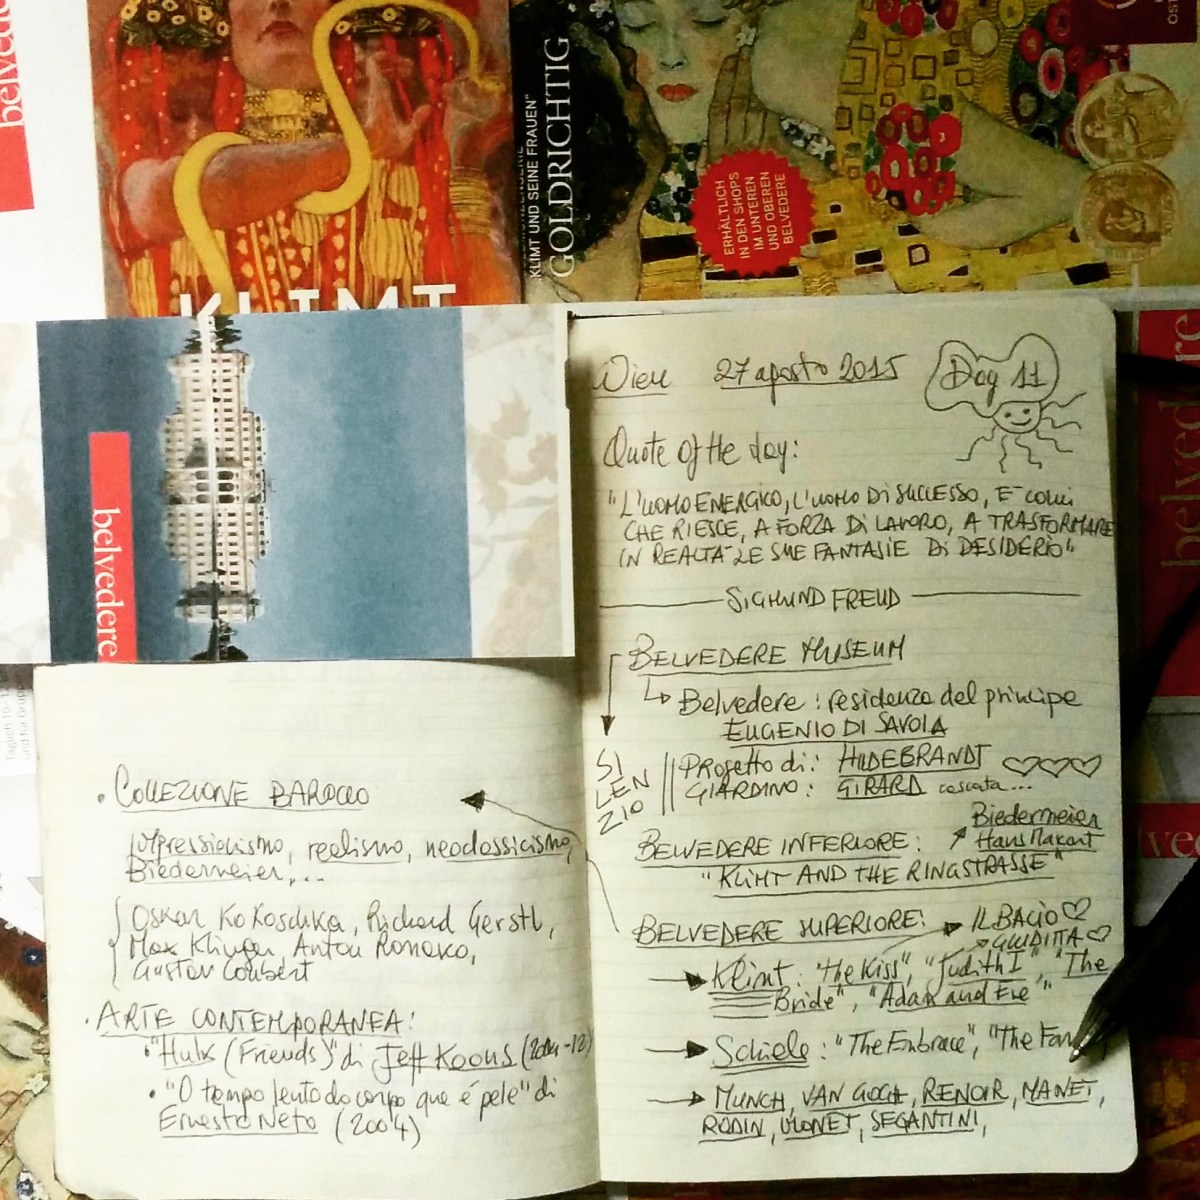 belvede
KLIMT
KLIMT UND SEINE FRAUEN"
GOLDRICHTIG
ERHÄLTLICH
IN DEN SHOPS
IM UNTEREN
UND OBEREN
BELVEDERE
belvedere
Wien 27 agosto 2015 Day 11
Quote of the day:
"L'UOMO ENERGICO, L'UOMO DI SUCCESSO, E' COLUI
CHE RIESCE, A FORZA DI LAVORO, A TRASFORMARE
IN REALTA' LE SUE FANTASIE DI DESIDERIO"
SIGMUND FREUD
BELVEDERE MUSEUM
Belvedere: residenza del principe
EUGENIO DI SAVOIA
SI
LEN
ZIO
PROGETTO di: HILDEBRANDT
GIARDINO: GIRARD cascata...
Biedermeier
Hans Makart
BELVEDERE INFERIORE:
"KLIMT AND THE RINGSTRASSE"
BELVEDERE SUPERIORE: IL BACIO
GIUDITTA
Klimt: "The Kiss", "Judith I", "The
Bride", "Adam and Eve"
Schiele: "The Embrace", "The Fam
MUNCH, VAN GOGH, RENOIR, MANET,
RODIN, MONET, SEGANTINI,
• COLLEZIONE BAROCCO
Impressionismo, realismo, neoclassicismo,
Biedermeier,...
Oskar Kokoschka, Richard Gerstl,
Max Klinger, Anton Romako,
Gustav Courbert
• ARTE CONTEMPORANEA:
• "Hulk (Friends)" di Jeff Koons (2004-12)
• "O tempo lento do corpo que é pele" di
Ernesto Neto (2004)
belvedere